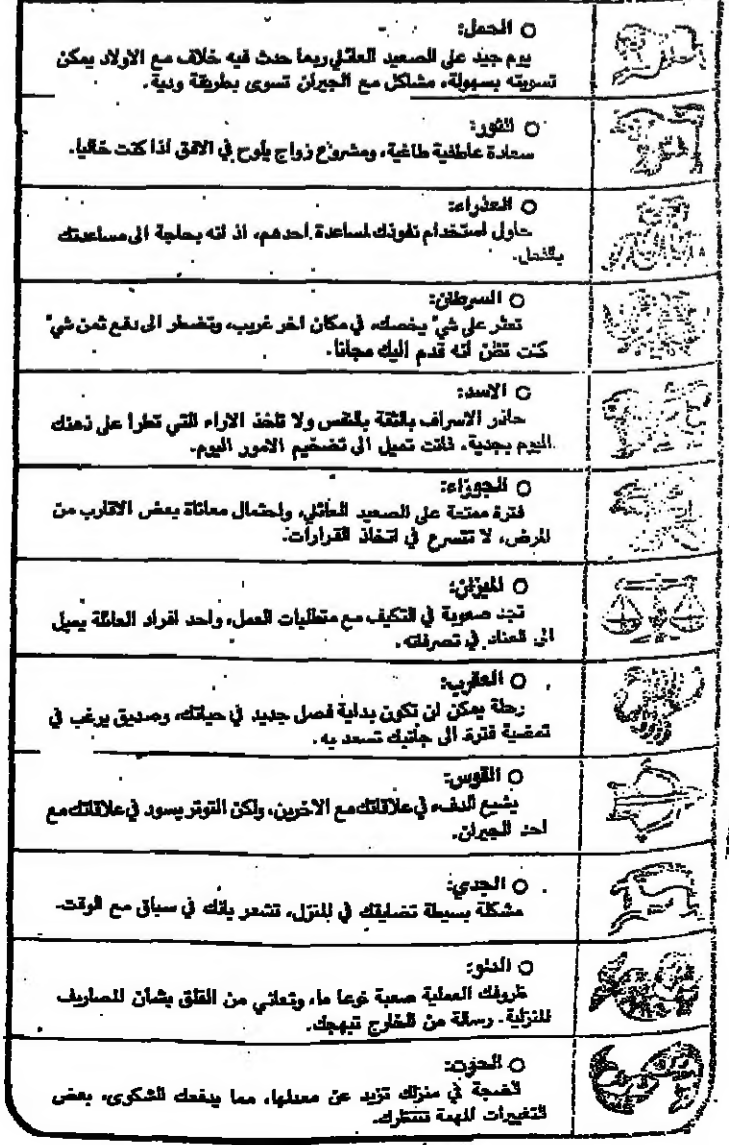 ○ الحمل:
يوم جيد على الصعيد العائلي ربما حدث فيه خلاف مع الاولاد يمكن
تسويته بسهولة، مشاكل مع الجيران تسوى بطريقة ودية.
○ الثور:
سعادة عاطفية طاغية، ومشروع زواج يلوح في الافق اذا كنت خاليا.
○ العذراء:
حاول استخدام نفوذك لمساعدة احدهم، اذ انه بحاجة الى مساعدتك
بالفعل.
○ السرطان:
تعثر على شيء يخصك، في مكان اخر غريب، وتضطر الى دفع ثمن شيء
كنت تظن انه قدم اليك مجانا.
○ الاسد:
حاذر الاسراف بالثقة بالنفس ولا تاخذ الاراء التي تطرا على ذهنك
اليوم بجدية، فانت تميل الى تضخيم الامور اليوم.
○ الجوزاء:
فترة ممتعة على الصعيد العائلي، واحتمال معاناة بعض الاقارب من
المرض، لا تتسرع في اتخاذ القرارات.
○ الميزان:
تجد صعوبة في التكيف مع متطلبات العمل، واحد افراد العائلة يميل
الى العناد في تصرفاته.
○ العقرب:
رحلة يمكن ان تكون بداية فصل جديد في حياتك، وصديق يرغب في
تمضية فترة الى جانبك تسعد به.
○ القوس:
يشيع الدفء في علاقاتك مع الاخرين، ولكن التوتر يسود في علاقاتك مع
احد الجيران.
○ الجدي:
مشكلة بسيطة تضايقك في المنزل، تشعر بانك في سباق مع الوقت.
○ الدلو:
ظروفك العملية صعبة نوعا ما، وتعاني من القلق بشأن المصاريف
المنزلية. رسالة من الخارج تبهجك.
○ الحوت:
الضجة في منزلك تزيد عن معدلها، مما يدفعك للشكوى، بعض
التغييرات المهمة تنتظرك.